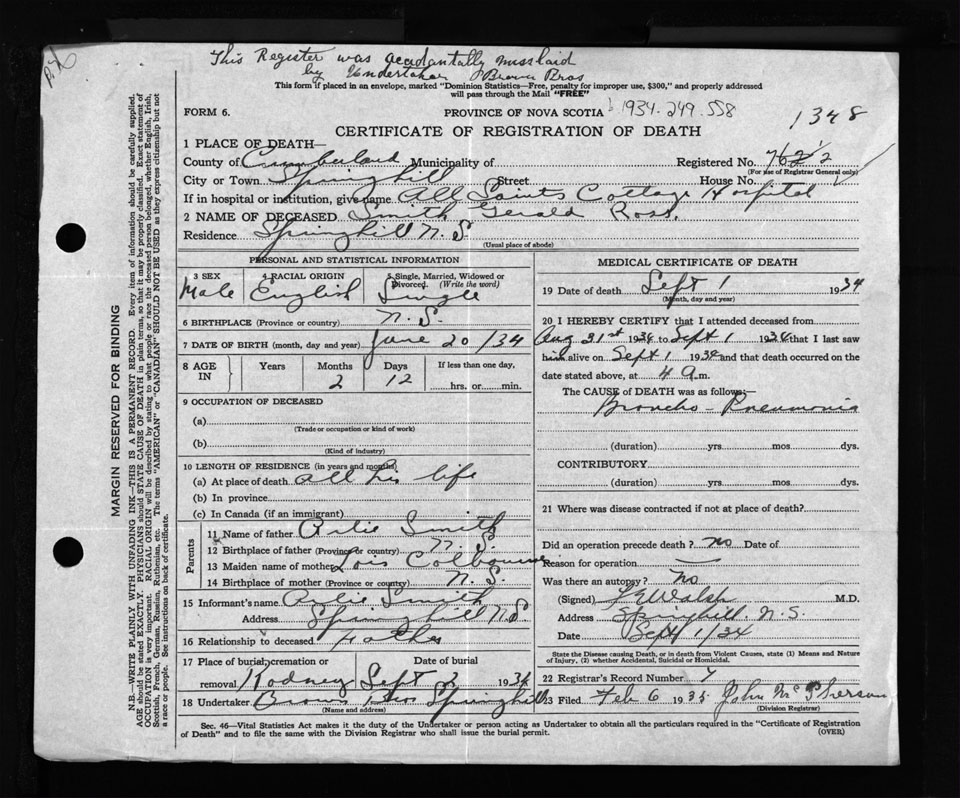 This Register was accadantally misslaid
by Undertaker Brown Bros
This form if placed in an envelope, marked "Dominion Statistics—Free, penalty for improper use, $300," and properly addressed
will pass through the Mail "FREE"
FORM 6. PROVINCE OF NOVA SCOTIA 1934.249.558
1348
CERTIFICATE OF REGISTRATION OF DEATH
1 PLACE OF DEATH—
County of Cumberland Municipality of Registered No.
(For use of Registrar General only)
City or Town Springhill Street House No.
If in hospital or institution, give name All Saints Cottage Hospital
2 NAME OF DECEASED Smith Gerald Ross.
Residence Springhill N.S.
(Usual place of abode)
PERSONAL AND STATISTICAL INFORMATION
3 SEX 4 RACIAL ORIGIN 5 Single, Married, Widowed or
Divorced. (Write the word)
Male English Single
6 BIRTHPLACE (Province or country) N.S.
7 DATE OF BIRTH (month, day and year) June 20/34
8 AGE IN Years Months Days If less than one day,
2 12 hrs. or min.
9 OCCUPATION OF DECEASED
(a)
(Trade or occupation or kind of work)
(b)
(Kind of industry)
10 LENGTH OF RESIDENCE (in years and months)
(a) At place of death all his life
(b) In province
(c) In Canada (if an immigrant)
Parents
11 Name of father Arlie Smith
12 Birthplace of father (Province or country) N.S.
13 Maiden name of mother Lois Colbourne
14 Birthplace of mother (Province or country) N.S.
15 Informant's name Arlie Smith
Address Springhill N.S.
16 Relationship to deceased Father
17 Place of burial, cremation or Date of burial
removal Rodney Sept 3 1934
18 Undertaker Brown Bros Springhill
(Name and address)
MEDICAL CERTIFICATE OF DEATH
19 Date of death Sept 1 1934
(Month, day and year)
20 I HEREBY CERTIFY that I attended deceased from
Aug 31st 1934 to Sept 1 1934 that I last saw
him alive on Sept 1 1934 and that death occurred on
date stated above, at 4 a.m.
The CAUSE OF DEATH was as follows:—
Broncho-Pneumonia
(duration) yrs. mos. dys.
CONTRIBUTORY
(duration) yrs. mos. dys.
21 Where was disease contracted if not at place of death?
Did an operation precede death? No Date of
Reason for operation
Was there an autopsy? No
(Signed) Walsh M.D.
Address Springhill. N.S.
Date Sept 1/34
State the Disease causing Death, or in death from Violent Causes, state (1) Means and Nature
of Injury, (2) whether Accidental, Suicidal or Homicidal.
22 Registrar's Record Number 7
23 Filed Feb 6 1935 John McPherson
(Division Registrar)
Sec. 46—Vital Statistics Act makes it the duty of the Undertaker or person acting as Undertaker to obtain all the particulars required in the "Certificate of Registration
of Death" and to file the same with the Division Registrar who shall issue the burial permit. (OVER)
MARGIN RESERVED FOR BINDING
N.B.—WRITE PLAINLY WITH UNFADING INK—THIS IS A PERMANENT RECORD. Every item of information should be carefully supplied.
AGE should be stated EXACTLY. PHYSICIANS should STATE CAUSE OF DEATH in plain terms, so that it may be properly classified. Exact statement of
OCCUPATION is very important. RACIAL ORIGIN will be described by stating to what people or race the deceased person belonged, whether English, Irish,
Scottish, French, German, Russian, Ruthenian, etc. The terms "AMERICAN" or "CANADIAN" SHOULD NOT BE USED as they express citizenship but not
a race or people. See instructions on back of certificate.